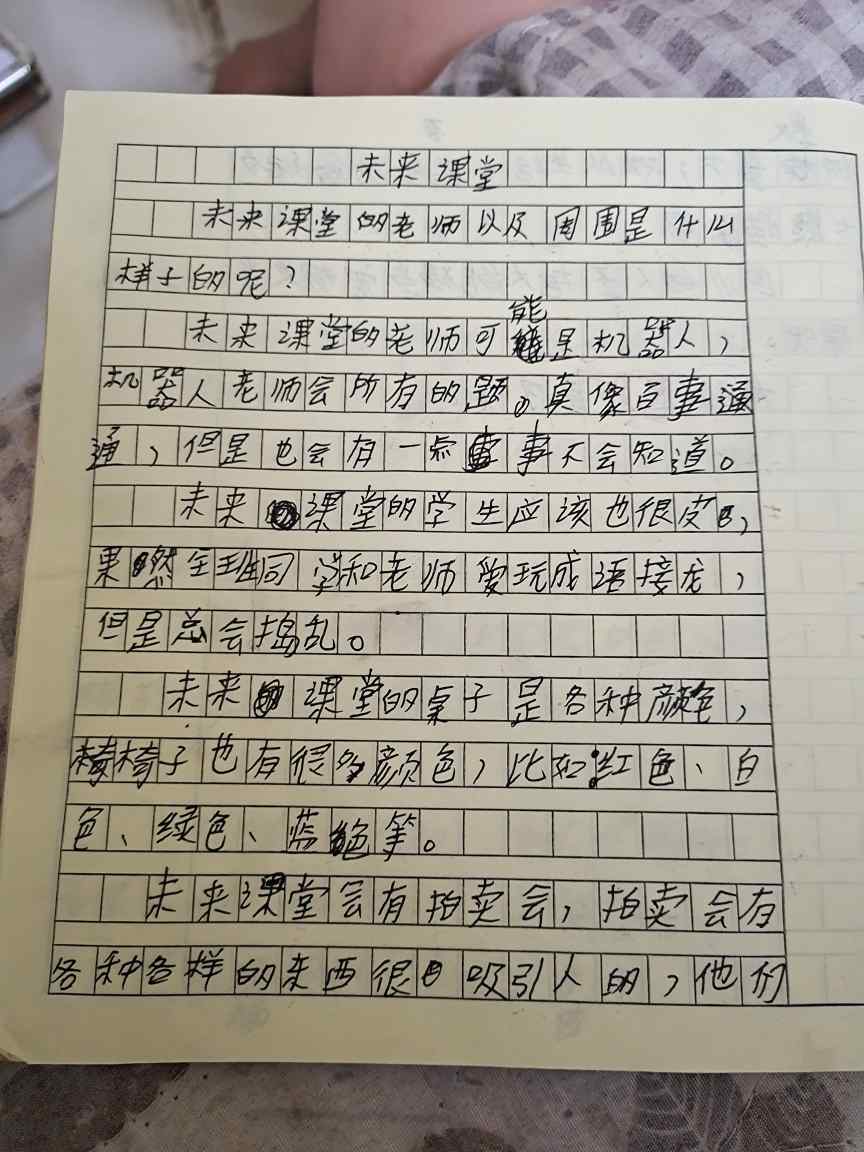 未来课堂
未来课堂的老师以及周围是什么
样子的呢？
未来课堂的老师可能是机器人，
机器人老师会所有的题。真像百事通
通，但是也会有一点事不会知道。
未来课堂的学生应该也很皮，
果然全班同学和老师爱玩成语接龙，
但是总会捣乱。
未来课堂的桌子是各种颜色，
椅椅子也有很多颜色，比如:红色、白
色、绿色、蓝色等。
未来课堂会有拍卖会，拍卖会有
各种各样的东西很吸引人的，他们